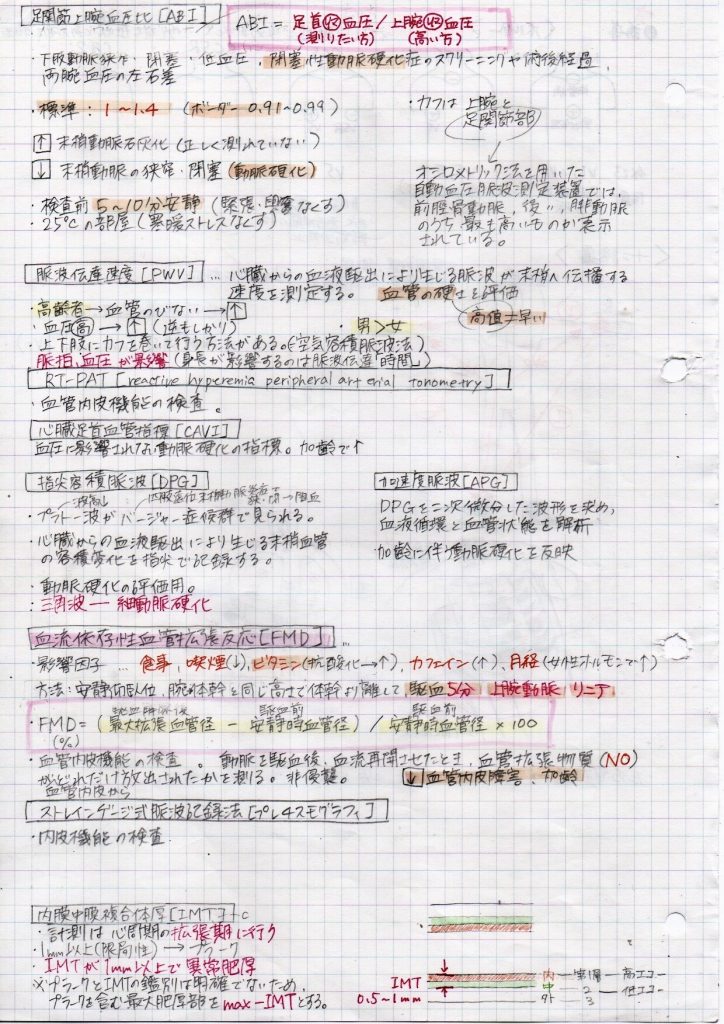 足関節上腕血圧比[ABI]
ABI = 足首収血圧 / 上腕収血圧
(測りたい方) (高い方)
・下肢動脈狭窄・閉塞・低血圧、閉塞性動脈硬化症のスクリーニングや術後経過、
両腕血圧の左右差
・標準：1〜1.4 (ボーダー 0.91〜0.99)
↑ 末梢動脈石灰化(正しく測れていない)
↓ 末梢動脈の狭窄・閉塞(動脈硬化)
・検査前5〜10分安静(緊張・興奮なくす)
・25℃の部屋(寒暖ストレスなくす)
・カフは上腕と
足関節部
オシロメトリック法を用いた
自動血圧脈波測定装置では、
前脛骨動脈、後〃、腓動脈
のうち最も高いものが表示
されている。
脈波伝達速度[PWV] … 心臓からの血液駆出により生じる脈波が末梢へ伝播する
速度を測定する。 血管の硬さを評価
・高齢者→血管のびない→↑
高値=早い
・血圧高→↑(逆もしかり) ・男>女
・上下肢にカフを巻いて行う方法がある。(空気容積脈波法)
脈拍、血圧が影響(身長が影響するのは脈波伝達「時間」)
RT-PAT [reactive hyperemia peripheral arterial tonometry]
・血管内皮機能の検査。
心臓足首血管指標[CAVI]
血圧に影響されない動脈硬化の指標。加齢で↑
指尖容積脈波[DPG]
・プラトー波がバージャー症候群で見られる。
・心臓からの血液駆出により生じる末梢血管
の容積変化を指尖で記録する。
・動脈硬化の評価用。
：三角波 ― 細動脈硬化
加速度脈波[APG]
DPGを二次微分した波形を求め、
血液循環と血管状態を解析
加齢に伴う動脈硬化を反映
血流依存性血管拡張反応[FMD] …
・影響因子 … 食事、喫煙(↓)、ビタミン(抗酸化→↑)、カフェイン(↑)、月経(女性ホルモンで↑)
方法：安静仰臥位、腕は体幹と同じ高さで体幹より離して 駆血5分 上腕動脈 リニア
駆血解除後 駆血前 駆血前
・FMD = (最大拡張血管径 − 安静時血管径) / 安静時血管径 × 100
(%)
・血管内皮機能の検査。 動脈を駆血後、血流再開させたとき、血管拡張物質(NO)
がどれだけ放出されたかを測る。非侵襲。 ↓血管内皮障害、加齢
血管内皮から
ストレインゲージ式脈波記録法[プレチスモグラフィ]
・内皮機能の検査
内膜中膜複合体厚[IMT]
・計測は心周期の拡張期に行う
・1mm以上(限局性) → プラーク
・IMTが1mm以上で異常肥厚
※プラークとIMTの鑑別は明確でないため、
プラークを含む最大肥厚部をmax−IMTとする。
IMT
0.5〜1mm
内 ― 第1層 ― 高エコー
中 ― 2 ― 低エコー
外 3